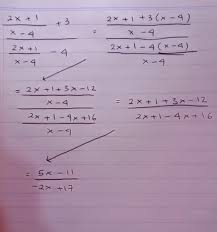 ((2x+1)/(x-4) + 3) / ((2x+1)/(x-4) - 4) = ((2x+1+3(x-4))/(x-4)) / ((2x+1-4(x-4))/(x-4))
= ((2x+1+3x-12)/(x-4)) / ((2x+1-4x+16)/(x-4)) = (2x+1+3x-12)/(2x+1-4x+16)
= (5x-11)/(-2x+17)